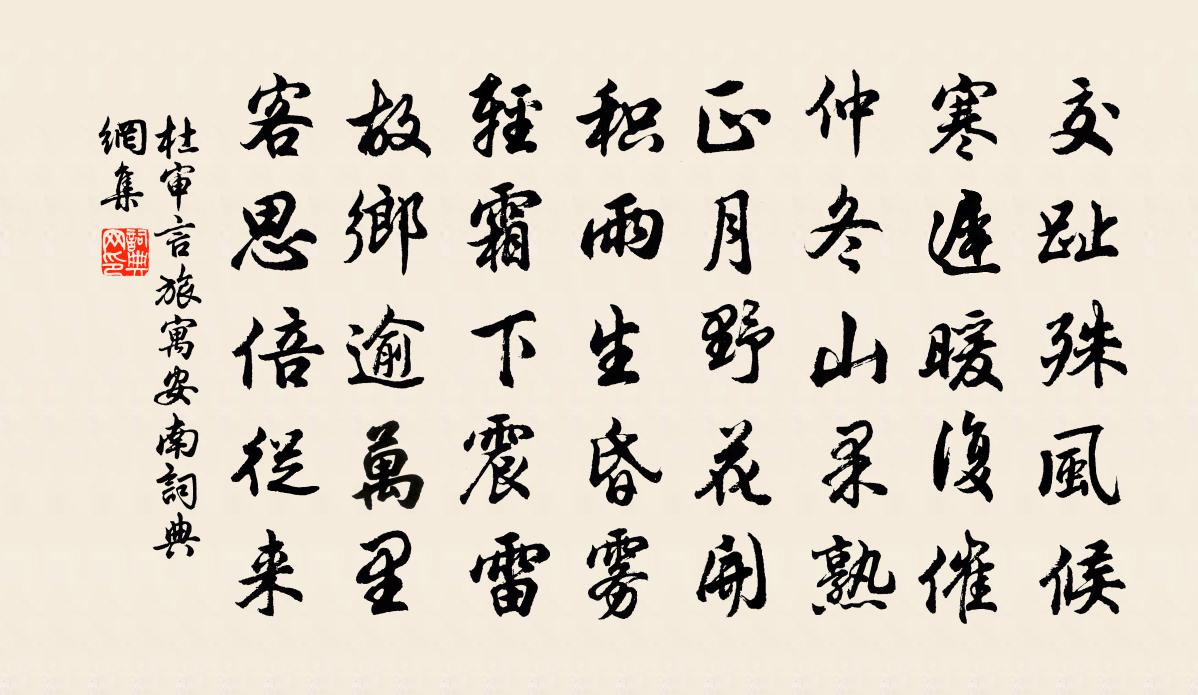 交趾殊風候
寒遲暖復催
仲冬山果熟
正月野花開
积雨生昏雾
輕霜下震雷
故鄉逾萬里
客思倍從来
杜审言旅寓安南詞典
網集
詞典
网印